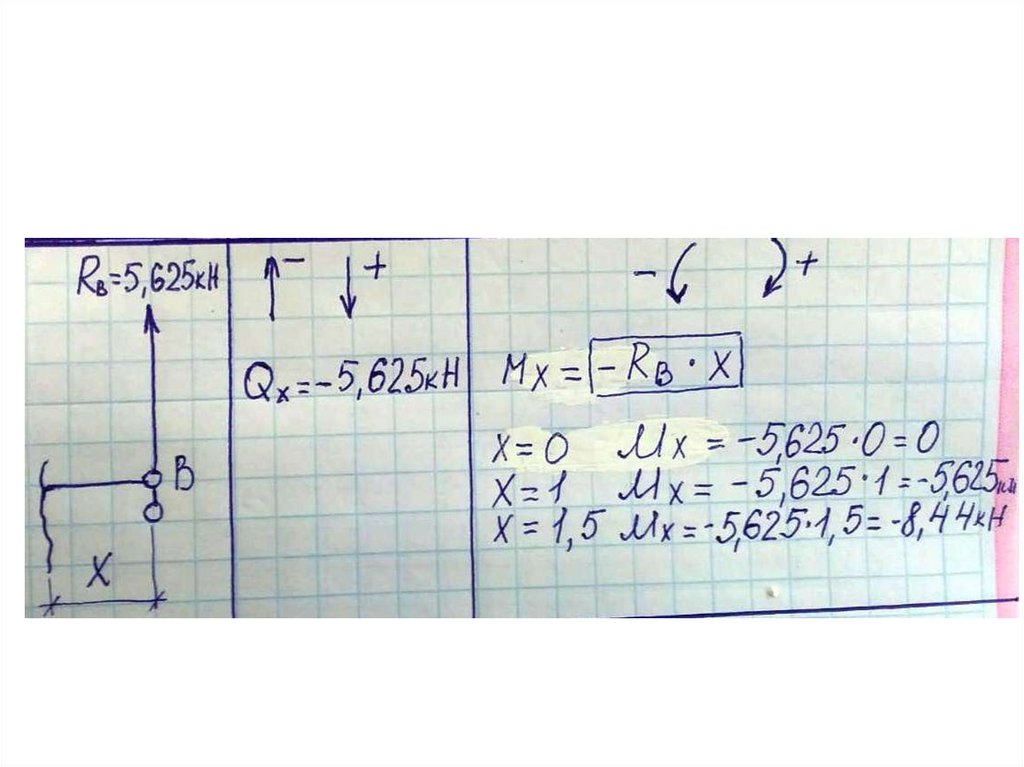 Rв=5,625кН
- +
Qx=-5,625кН
- +
Mx = -Rв · x
x=0 Mx = -5,625·0=0
x=1 Mx = -5,625·1=-5,625кН
x=1,5 Mx=-5,625·1,5=-8,44кН
В
x